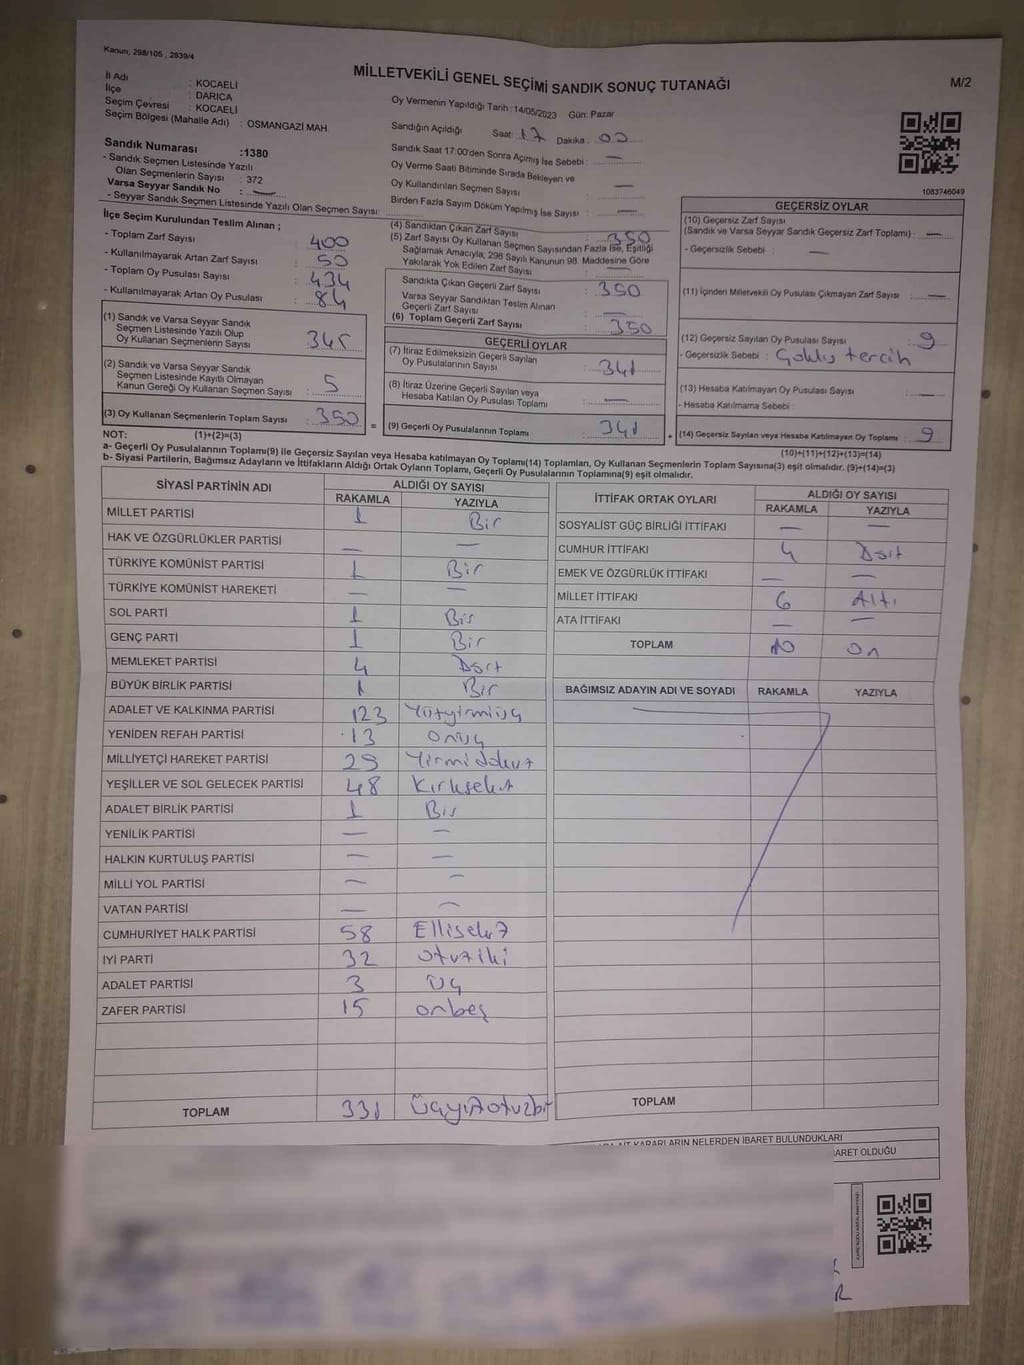 Kanun; 298/105 , 2839/4
MİLLETVEKİLİ GENEL SEÇİMİ SANDIK SONUÇ TUTANAĞI
M/2
İl Adı : KOCAELİ
İlçe : DARICA
Seçim Çevresi : KOCAELİ
Seçim Bölgesi (Mahalle Adı) : OSMANGAZİ MAH.
Sandık Numarası :1380
- Sandık Seçmen Listesinde Yazılı
Olan Seçmenlerin Sayısı : 372
Varsa Seyyar Sandık No : —
- Seyyar Sandık Seçmen Listesinde Yazılı Olan Seçmen Sayısı:
Oy Vermenin Yapıldığı Tarih :14/05/2023 Gün: Pazar
Sandığın Açıldığı Saat: 17 Dakika : 00
Sandık Saat 17:00'den Sonra Açımış İse Sebebi : —
Oy Verme Saati Bitiminde Sırada Bekleyen ve
Oy Kullandırılan Seçmen Sayısı : —
Birden Fazla Sayım Döküm Yapılmış İse Sayısı : —
1083746049
İlçe Seçim Kurulundan Teslim Alınan ;
- Toplam Zarf Sayısı : 400
- Kullanılmayarak Artan Zarf Sayısı : 50
- Toplam Oy Pusulası Sayısı : 434
- Kullanılmayarak Artan Oy Pusulası : 84
(1) Sandık ve Varsa Seyyar Sandık
Seçmen Listesinde Yazılı Olup
Oy Kullanan Seçmenlerin Sayısı 345
(2) Sandık ve Varsa Seyyar Sandık
Seçmen Listesinde Kayıtlı Olmayan
Kanun Gereği Oy Kullanan Seçmen Sayısı : 5
(3) Oy Kullanan Seçmenlerin Toplam Sayısı : 350 =
(4) Sandıktan Çıkan Zarf Sayısı : 350
(5) Zarf Sayısı Oy Kullanan Seçmen Sayısından Fazla İse, Eşitliği
Sağlamak Amacıyla; 298 Sayılı Kanunun 98. Maddesine Göre
Yakılarak Yok Edilen Zarf Sayısı : —
Sandıkta Çıkan Geçerli Zarf Sayısı : 350
Varsa Seyyar Sandıktan Teslim Alınan
Geçerli Zarf Sayısı : —
(6) Toplam Geçerli Zarf Sayısı : 350
GEÇERLİ OYLAR
(7) İtiraz Edilmeksizin Geçerli Sayılan
Oy Pusulalarının Sayısı : 341
(8) İtiraz Üzerine Geçerli Sayılan veya
Hesaba Katılan Oy Pusulası Toplamı : —
(9) Geçerli Oy Pusulalarının Toplamı : 341 +
GEÇERSİZ OYLAR
(10) Geçersiz Zarf Sayısı
(Sandık ve Varsa Seyyar Sandık Geçersiz Zarf Toplamı) : —
- Geçersizlik Sebebi : —
(11) İçinden Milletvekili Oy Pusulası Çıkmayan Zarf Sayısı : —
(12) Geçersiz Sayılan Oy Pusulası Sayısı : 9
- Geçersizlik Sebebi : Çoklu tercih
(13) Hesaba Katılmayan Oy Pusulası Sayısı : —
- Hesaba Katılmama Sebebi :
(14) Geçersiz Sayılan veya Hesaba Katılmayan Oy Toplamı : 9
NOT: (1)+(2)=(3)
(10)+(11)+(12)+(13)=(14)
a- Geçerli Oy Pusulalarının Toplamı(9) ile Geçersiz Sayılan veya Hesaba Katılmayan Oy Toplamı(14) Toplamları, Oy Kullanan Seçmenlerin Toplam Sayısına(3) eşit olmalıdır. (9)+(14)=(3)
b- Siyasi Partilerin, Bağımsız Adayların ve İttifakların Aldığı Ortak Oyların Toplamı, Geçerli Oy Pusulalarının Toplamına(9) eşit olmalıdır.
SİYASİ PARTİNİN ADI ALDIĞI OY SAYISI
RAKAMLA YAZIYLA
MİLLET PARTİSİ 1 Bir
HAK VE ÖZGÜRLÜKLER PARTİSİ — —
TÜRKİYE KOMÜNİST PARTİSİ 1 Bir
TÜRKİYE KOMÜNİST HAREKETİ — —
SOL PARTİ 1 Bir
GENÇ PARTİ 1 Bir
MEMLEKET PARTİSİ 4 Dört
BÜYÜK BİRLİK PARTİSİ 1 Bir
ADALET VE KALKINMA PARTİSİ 123 Yüzyirmiüç
YENİDEN REFAH PARTİSİ 13 onüç
MİLLİYETÇİ HAREKET PARTİSİ 29 Yirmidokuz
YEŞİLLER VE SOL GELECEK PARTİSİ 48 Kırksekiz
ADALET BİRLİK PARTİSİ 1 Bir
YENİLİK PARTİSİ — —
HALKIN KURTULUŞ PARTİSİ — —
MİLLİ YOL PARTİSİ — —
VATAN PARTİSİ — —
CUMHURİYET HALK PARTİSİ 58 Ellisekiz
İYİ PARTİ 32 otuziki
ADALET PARTİSİ 3 üç
ZAFER PARTİSİ 15 onbeş
TOPLAM 331 üçyüzotuzbir
İTTİFAK ORTAK OYLARI ALDIĞI OY SAYISI
RAKAMLA YAZIYLA
SOSYALİST GÜÇ BİRLİĞİ İTTİFAKI — —
CUMHUR İTTİFAKI 4 Dört
EMEK VE ÖZGÜRLÜK İTTİFAKI — —
MİLLET İTTİFAKI 6 Altı
ATA İTTİFAKI — —
TOPLAM 10 on
BAĞIMSIZ ADAYIN ADI VE SOYADI RAKAMLA YAZIYLA
TOPLAM
KARARLARIN NELERDEN İBARET BULUNDUKLARI
OLDUĞU